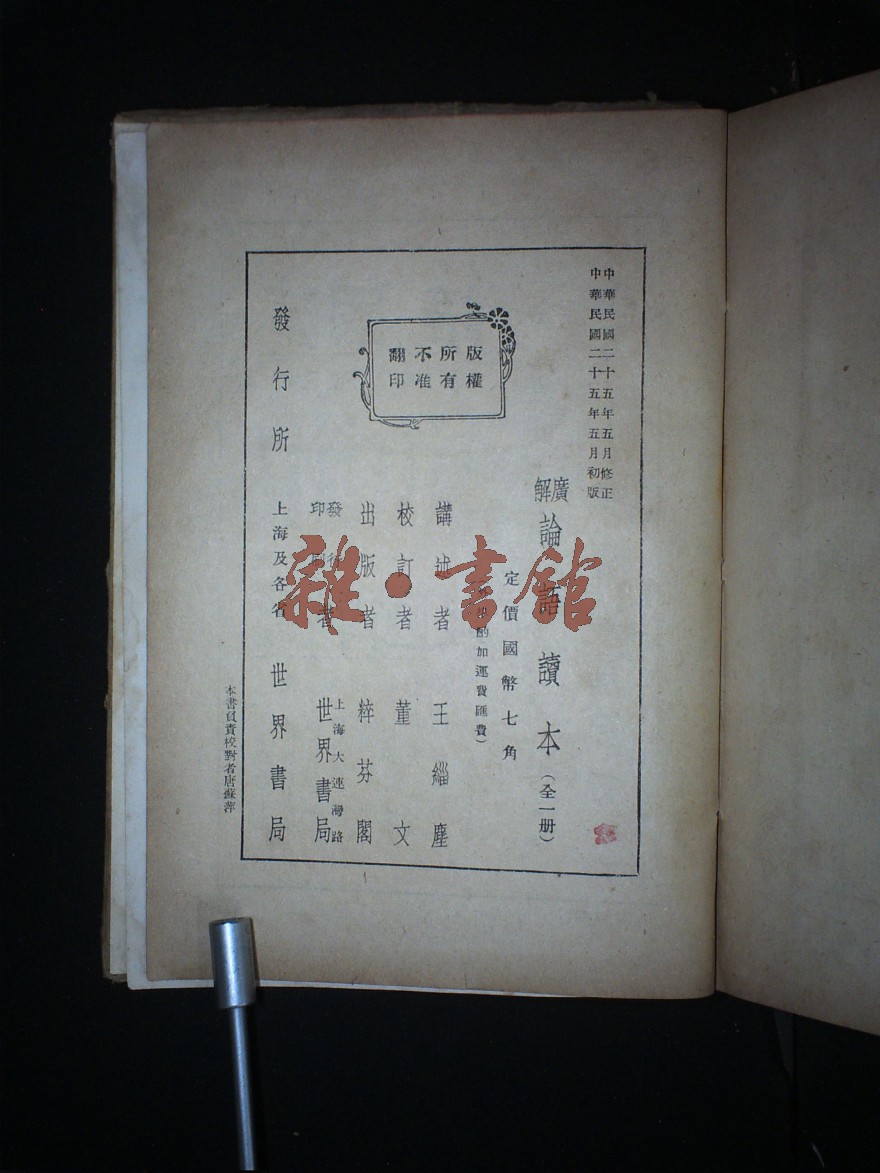 中華民國二十五年五月修正
中華民國二十五年五月初版
廣解
論語讀本(全一册)
定價國幣七角
酌加運費匯費)
版權
所有
不准
翻印
講述者 王緇塵
校訂者 董文
出版者 粹芬閣
發行
印者
上海大連灣路
世界書局
發行所 上海及各省 世界書局
本書負責校對者唐蘇萍
雜·書館